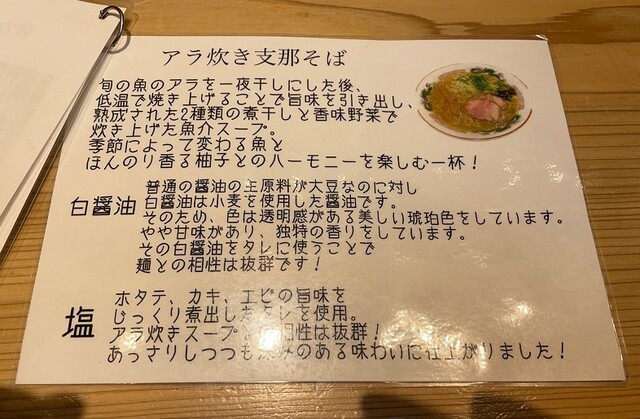 アラ炊き支那そば
旬の魚のアラを一夜干しにした後、
低温で焼き上げることで旨味を引き出し、
熟成された2種類の煮干しと香味野菜で
炊き上げた魚介スープ。
季節によって変わる魚と
ほんのり香る柚子とのハーモニーを楽しむ一杯！
白醤油
普通の醤油の主原料が大豆なのに対し
白醤油は小麦を使用した醤油です。
そのため、色は透明感がある美しい琥珀色をしています。
やや甘味があり、独特の香りをしています。
その白醤油をタレに使うことで
麺との相性は抜群です！
塩
ホタテ、カキ、エビの旨味を
じっくり煮出したタレを使用。
アラ炊きスープとの相性は抜群！
あっさりしつつも みのある味わいに仕上がりました！